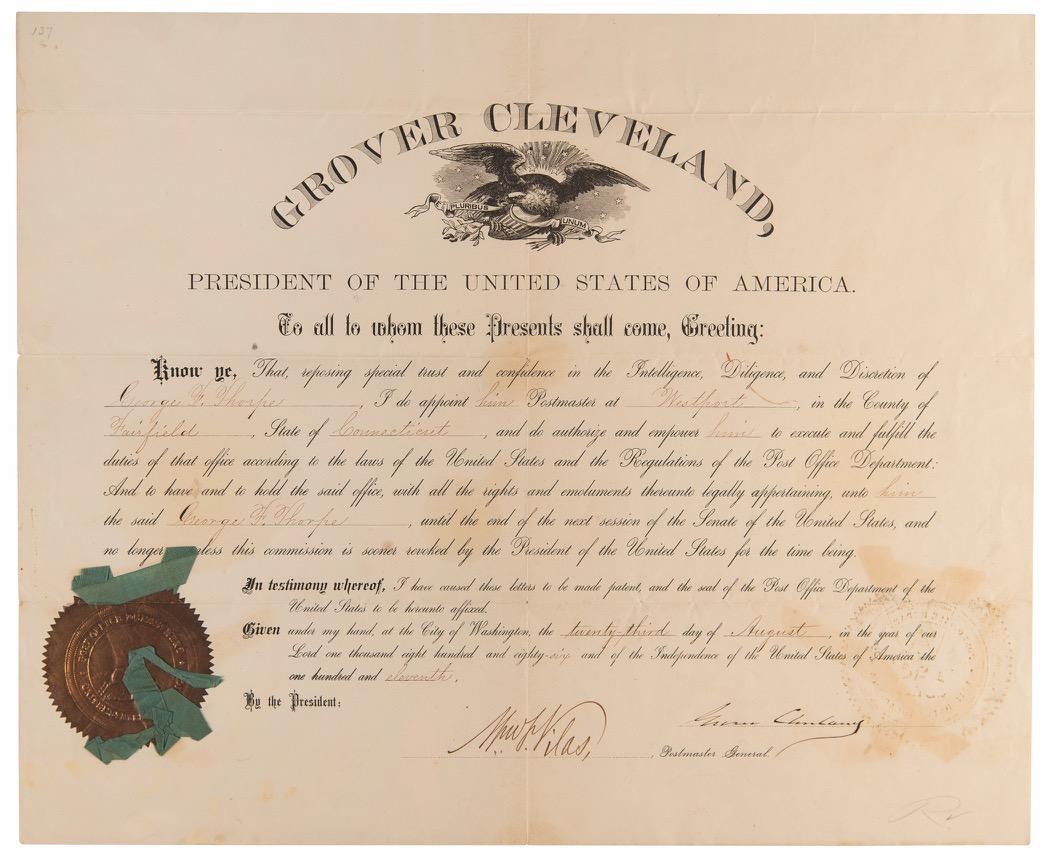 137
GROVER CLEVELAND,
E PLURIBUS UNUM
PRESIDENT OF THE UNITED STATES OF AMERICA.
To all to whom these Presents shall come, Greeting:
Know ye, That, reposing special trust and confidence in the Intelligence, Diligence, and Discretion of
George F. Thorpe, I do appoint him Postmaster at Westport, in the County of
Fairfield, State of Connecticut, and do authorize and empower him to execute and fulfill the
duties of that office according to the laws of the United States and the Regulations of the Post Office Department:
And to have and to hold the said office, with all the rights and emoluments thereunto legally appertaining, unto him
the said George F. Thorpe, until the end of the next session of the Senate of the United States, and
no longer, less this commission is sooner revoked by the President of the United States for the time being.
In testimony whereof, I have caused these letters to be made patent, and the seal of the Post Office Department of the
United States to be hereunto affixed.
Given under my hand, at the City of Washington, the twenty-third day of August, in the year of our
Lord one thousand eight hundred and eighty-six and of the Independence of the United States of America the
one hundred and eleventh.
By the President:
Grover Cleveland
Wm F. Vilas, Postmaster General.